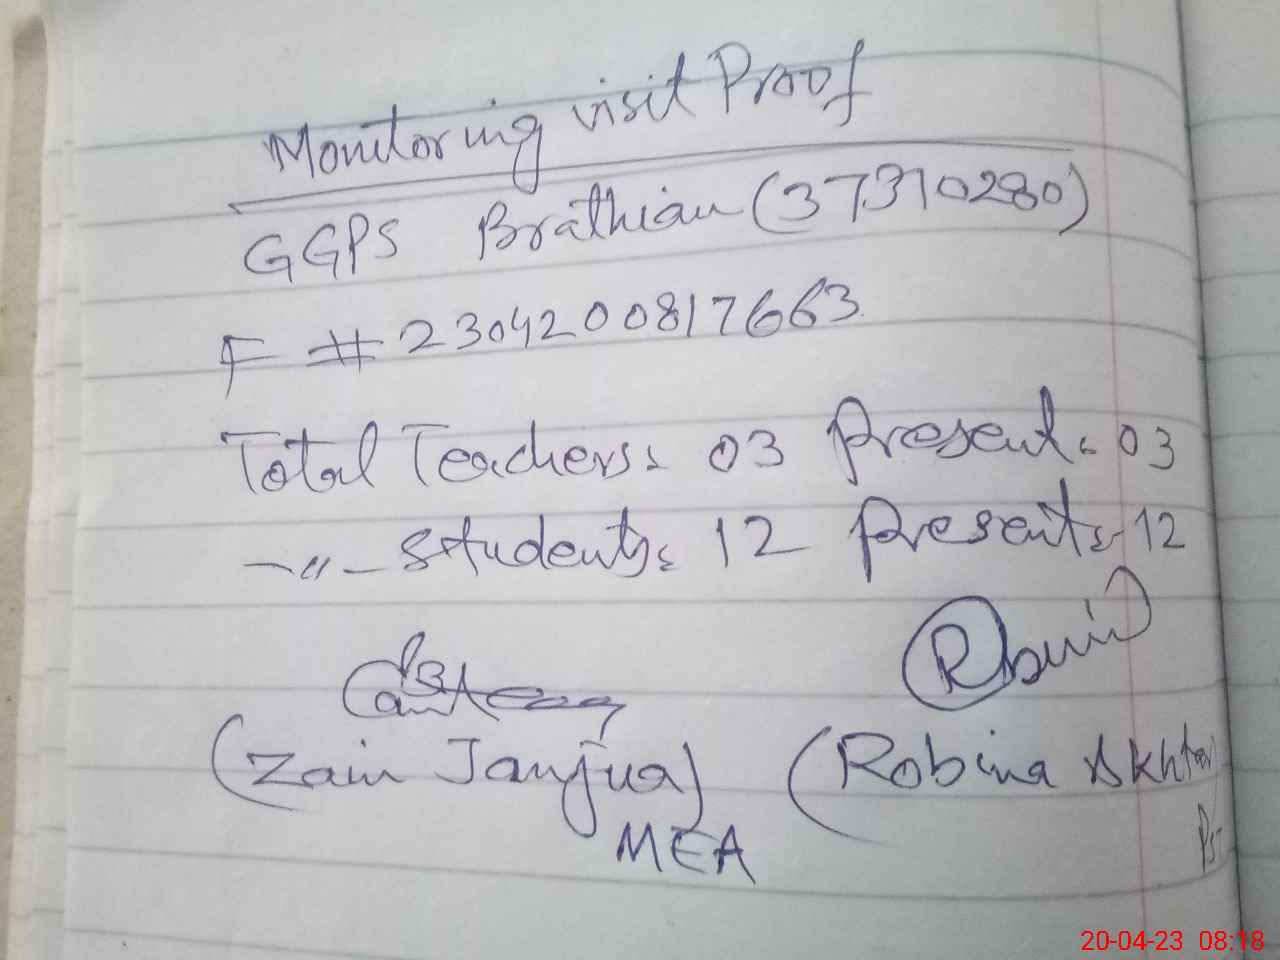 Monitoring visit Proof
GGPS Brathian (37310280)
F # 230420081 7663
Total Teachers: 03 Present: 03
-〃- Students: 12 Presents: 12
(Zain Janjua) (Robina Akhtar)
MEA PST
20-04-23 08:18